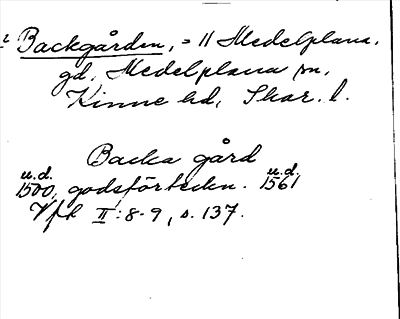 2 Backgården, = 11 Medelplana,
gd, Medelplana sn,
Kinne hd, Skar. l.
Backa gård
u.d. u.d.
1500, godsförteckn. 1561
Vfk II:8-9, s. 137.